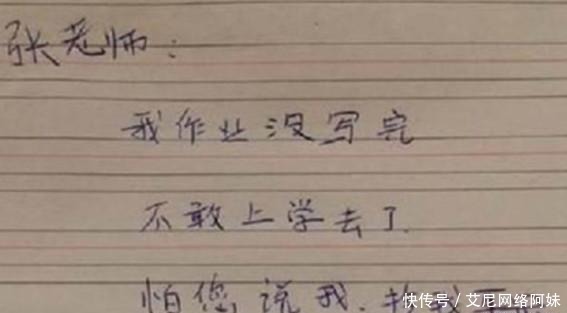 张老师:
我作业没写完
不敢上学去了.
怕您说我.
快传号/艾尼网络阿妹